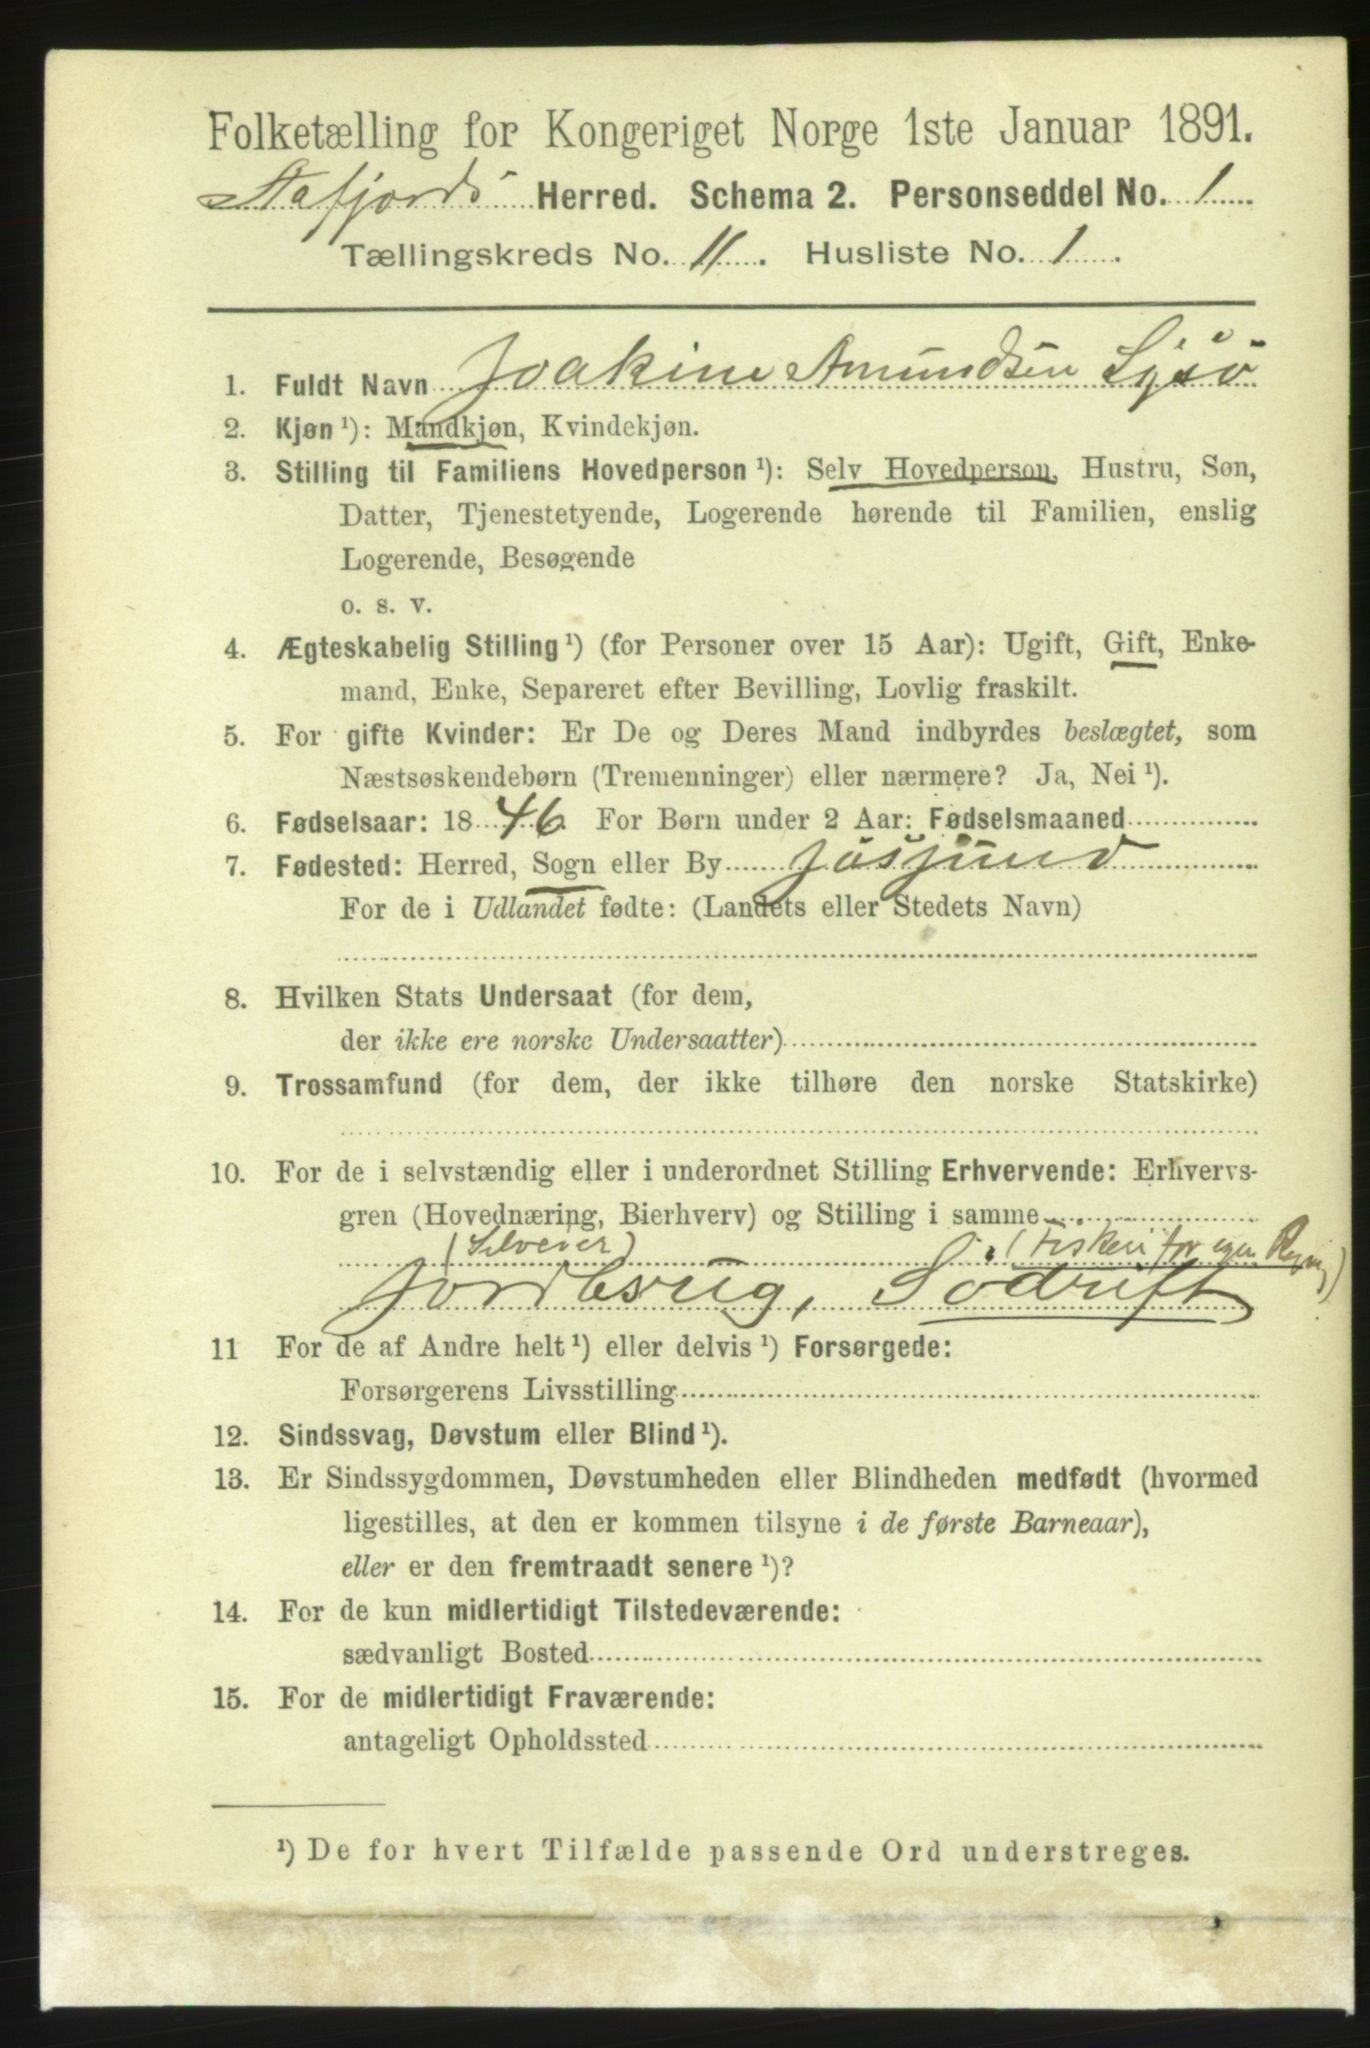 Folketælling for Kongeriget Norge 1ste Januar 1891.
Herred. Schema 2. Personseddel No. 1
Tællingskreds No. 11. Husliste No. 1.
1. Fuldt Navn Joakim Amundsen Lysö
2. Kjøn ¹): Mandkjøn, Kvindekjøn.
3. Stilling til Familiens Hovedperson ¹): Selv Hovedperson, Hustru, Søn,
Datter, Tjenestetyende, Logerende hørende til Familien, enslig
Logerende, Besøgende
o. s. v.
4. Ægteskabelig Stilling ¹) (for Personer over 15 Aar): Ugift, Gift, Enke-
mand, Enke, Separeret efter Bevilling, Lovlig fraskilt.
5. For gifte Kvinder: Er De og Deres Mand indbyrdes beslægtet, som
Næstsøskendebørn (Tremenninger) eller nærmere? Ja, Nei ¹).
6. Fødselsaar: 1846 For Børn under 2 Aar: Fødselsmaaned
7. Fødested: Herred, Sogn eller By Jøssund
For de i Udlandet fødte: (Landets eller Stedets Navn)
8. Hvilken Stats Undersaat (for dem,
der ikke ere norske Undersaatter)
9. Trossamfund (for dem, der ikke tilhøre den norske Statskirke)
10. For de i selvstændig eller i underordnet Stilling Erhvervende: Erhvervs-
gren (Hovednæring, Bierhverv) og Stilling i samme
(Selveier) (Fiskeri for egen Regning)
Jordbrug, Södrift
11 For de af Andre helt ¹) eller delvis ¹) Forsørgede:
Forsørgerens Livsstilling
12. Sindssvag, Døvstum eller Blind ¹).
13. Er Sindssygdommen, Døvstumheden eller Blindheden medfødt (hvormed
ligestilles, at den er kommen tilsyne i de første Barneaar),
eller er den fremtraadt senere ¹)?
14. For de kun midlertidigt Tilstedeværende:
sædvanligt Bosted
15. For de midlertidigt Fraværende:
antageligt Opholdssted
¹) De for hvert Tilfælde passende Ord understreges.